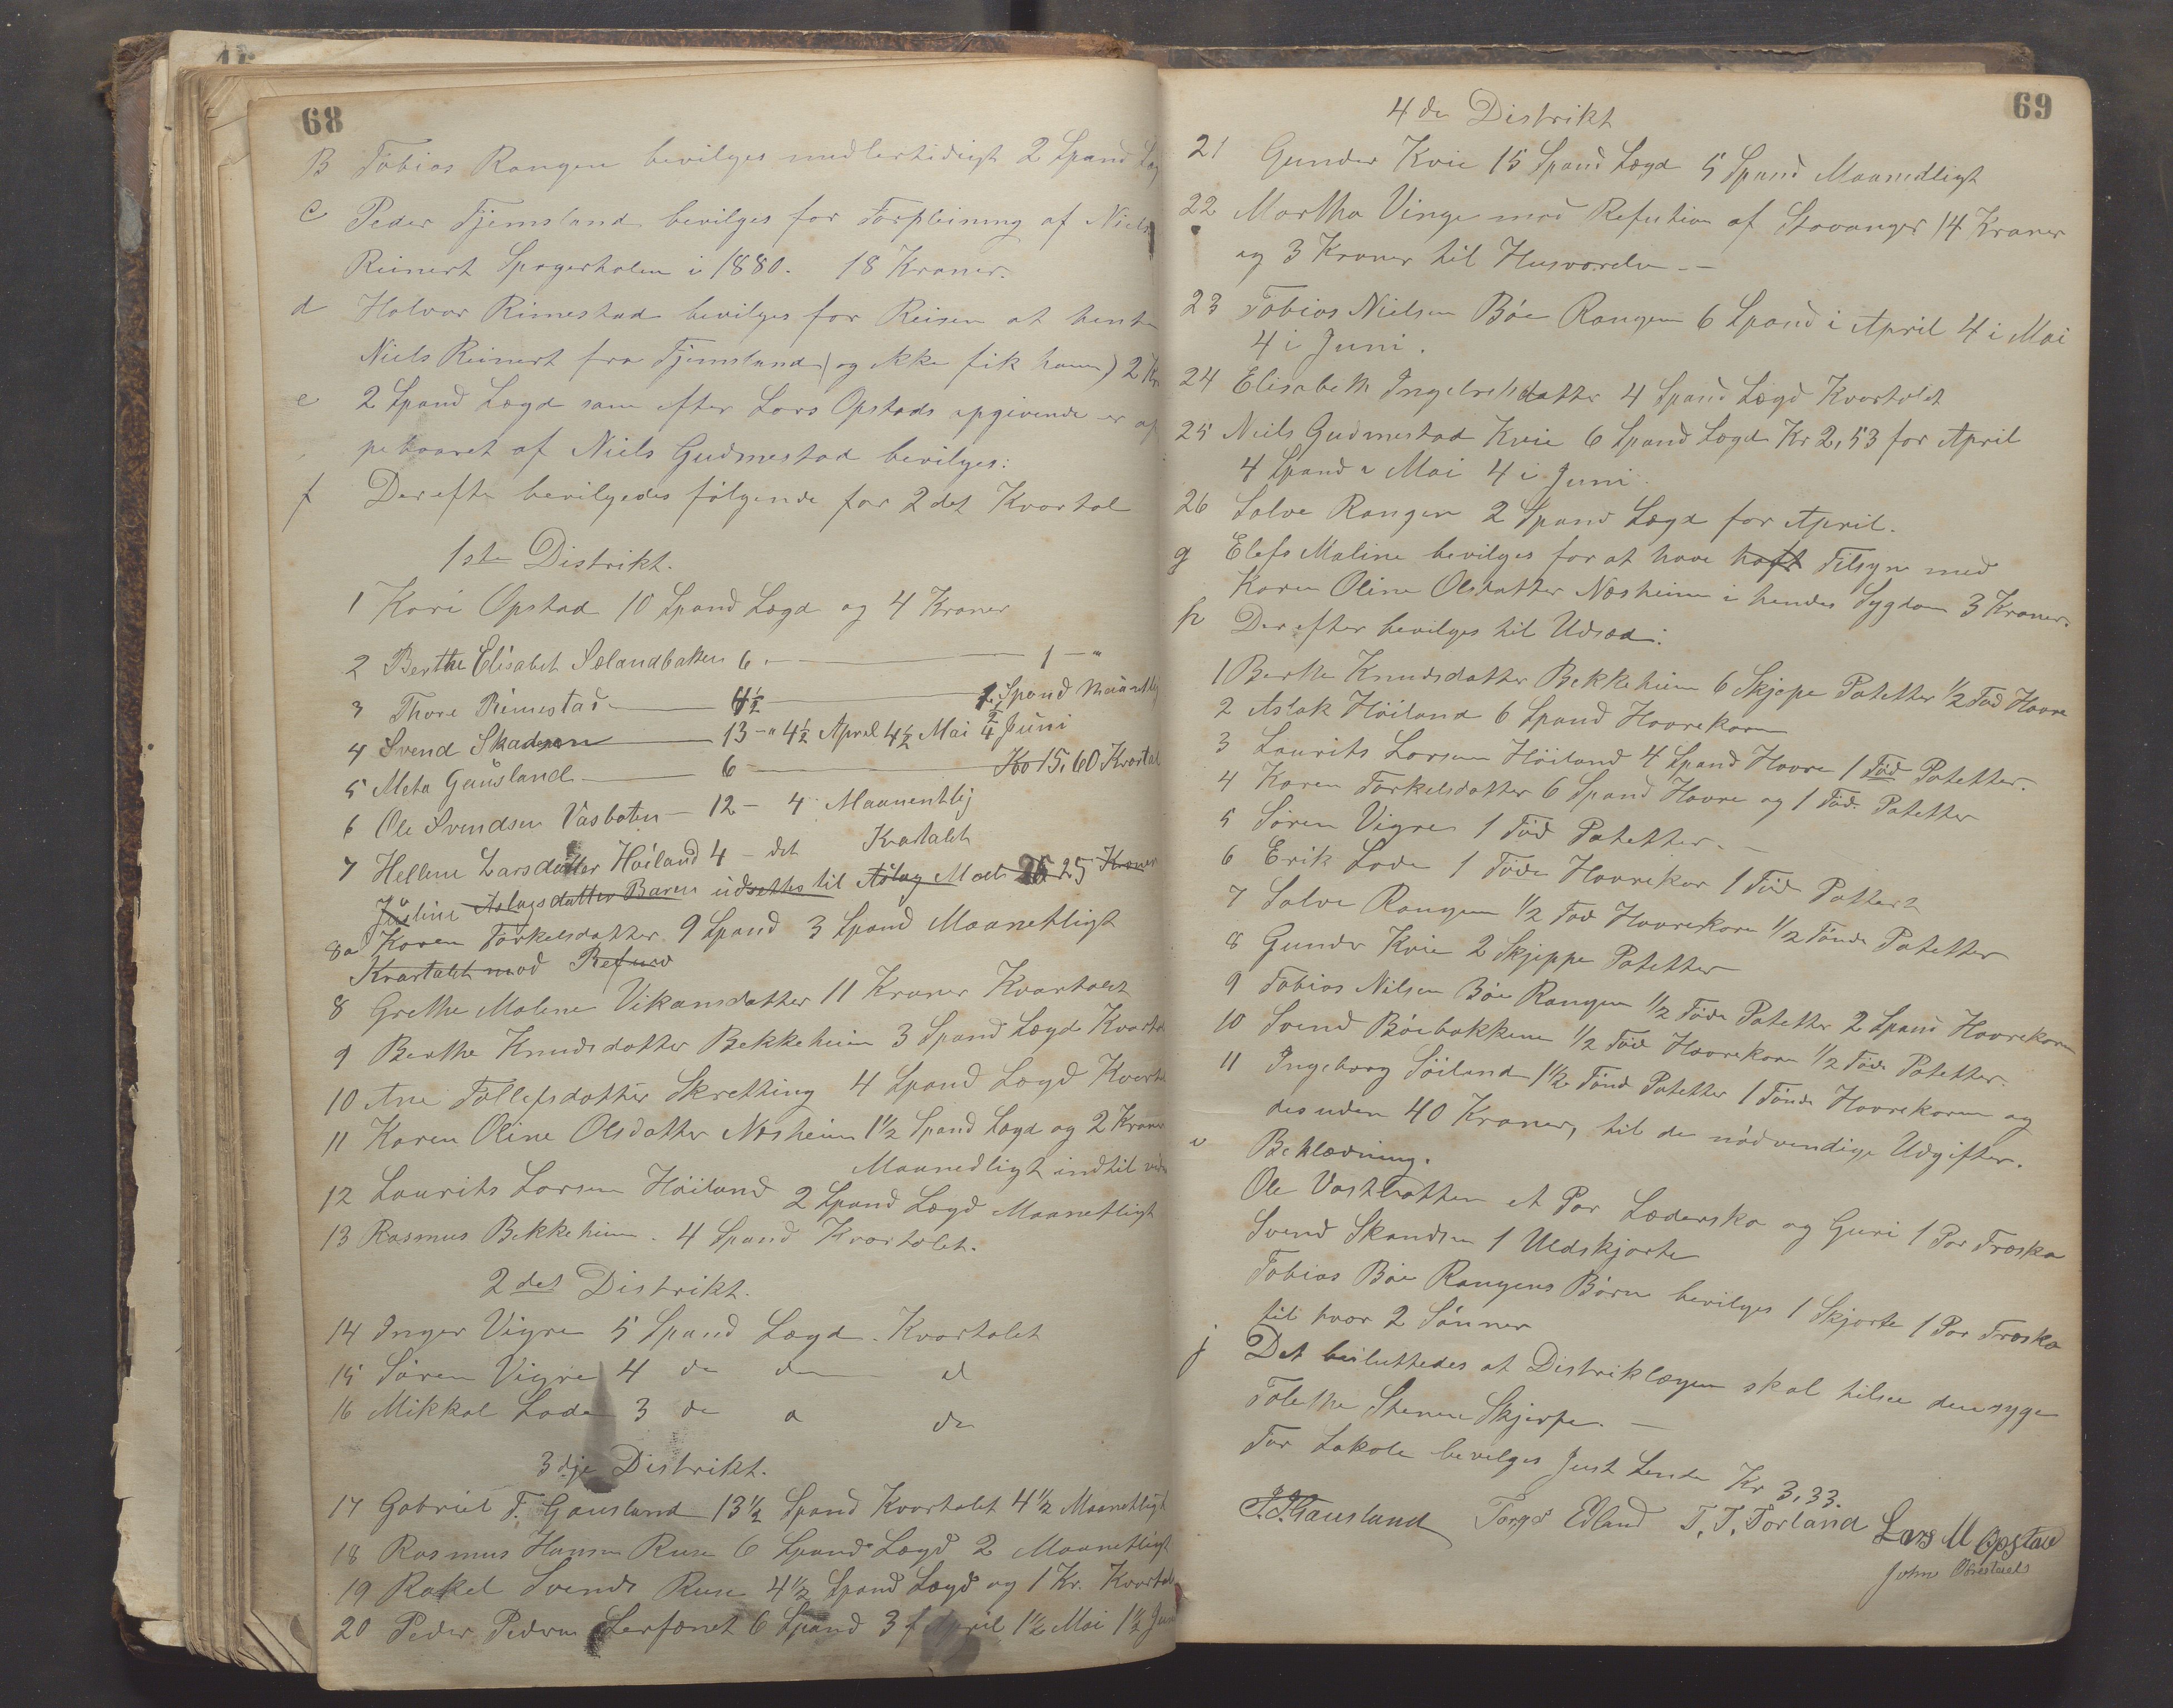 68
B Tobias Rangen bevilges midlertidigt 2 Spand
c Peder Tjemsland bevilges for Forpleining af Niels
Reinert Spogerholen i 1880. 18 Kroner.
d Halvor Rimestad bevilges for Reisen at hente
Niels Reinert fra Tjemsland (og ikke fik ham) 2 Kr
e 2 Spand Lægd som efter Lars Opstads opgivende er
af Niels Gudmestad bevilges:
f Derefter bevilgedes følgende for 2det Kvartal
1ste Distrikt.
1 Kari Opstad 10 Spand Lægd og 4 Kroner
2 Berthe Elisabet Sælandbakken 6 — 1 — "
3 Thore Rimestad 4½ 1½ Spand
4 Svend Skadsen 13 — " 4½ April 4½ Mai 4 Juni
5 Meta Gausland 6 Kr 15,60 Kvartal
6 Ole Svendsen Vasbotten — 12 — 4 Maanentlig
7 Helline Larsdatter Høiland 4 — det Kvartalet
Juline Aslagsdatter Baren udsettes til Aslag Moel 25 Kroner
8a Karen Torkelsdatter 9 Spand 3 Spand Maanetligt
Kvartalet mod Refusio
8 Grethe Malene Vikansdatter 11 Kroner Kvartalet
9 Berthe Knudsdatter Bekkeheim 3 Spand Lægd
10 Ane Tollefsdatter Skretting 4 Spand Lægd
11 Karen Oline Olsdatter Nøsheim 1½ Spand Lægd og 2 Kroner
Maanedligt indtil
12 Laurits Larsen Høiland 2 Spand Lægd Maanetligt
13 Rasmus Bekkeheim. 4 Spand Kvartalet.
2det Distrikt.
14 Inger Vigre 5 Spand Lægd. Kvartalet
15 Søren Vigre 4 do
16 Mikkal Lode 3 do do
3dje Distrikt.
17 Gabriel F. Gausland 13½ Spand Kvartalet 4½ Maanetligt
18 Rasmus Hansen Ruse 6 Spand Lægd 2 Maanetligt
19 Rakel Svends Ruse 4½ Spand Lægd og 1 Kr.
20 Peder Pedersen 6 Spand 3 f April 1½ Mai 1½
69
4de Distrikt
21 Gunder Kvie 15 Spand Lægd 5 Spand Maanedligt
22 Martha Vinge mod Refution af Stavanger 14 Kroner
og 3 Kroner til Husværelse —
23 Tobias Nielsen Bøe Rangen 6 Spand i April 4 i Mai
4 i Juni.
24 Elisabeth Ingebretsdatter 4 Spand Lægd Kvartalet
25 Niels Gudmestad Kvie 6 Spand Lægd Kr 2,53 for April
4 Spand i Mai 4 i Juni.
26 Salve Rangen 2 Spand Lægd for April.
g Elefs Maline bevilges for at have haft Tilsyn med
Karen Oline Olsdatter Nøsheim i hendes Sygdom 3 Kroner.
h Derefter bevilges til Udsæd:
1 Berthe Knudsdatter Bekkeheim 6 Skjepe Potetter ½ Tød Havre
2 Aslak Höiland 6 Spand Havrekorn
3 Laurits Larsen Höiland 4 Spand Havre 1 Tød Potetter.
4 Karen Torkelsdatter 6 Spand Havre og 1 Tød. Potetter
5 Søren Vigre 1 Tød Potetter. —
6 Erik Lode 1 Tøde Havrekor 1 Tød
7 Salve Rangen ½ Tød Havrekorn ½ Tønde Potetter
8 Gunder Kvie 2 Skjeppe Potetter
9 Tobias Nilsen Bøe Rangen ½ Tøde Potetter 2 Spand Havrekorn
10 Svend Bøebakken ½ Tød Havrekorn ½ Tøde Potetter.
11 Ingeborg Söiland 1½ Tønd Potetter 1 Tønde Havrekorn og
desuden 40 Kroner, til de nødvendige Udgifter.
Beklædning.
Ole Vastbotten et Par Lædersko og Guri 1 Par Træsko
Svend Skandsen 1 Uldskjorte
Tobias Bøe Rangens Børn bevilges 1 Skjorte 1 Par Træsko
til hver 2 Sønner
j Det besluttedes at Distriklægen skal tilsee den syge
Tolethe Stenene Skjerpe. —
For Lokale bevilges Just Lende Kr 3,33.
Gausland Torger Edland T. T. Torland Lars M Opstad
John